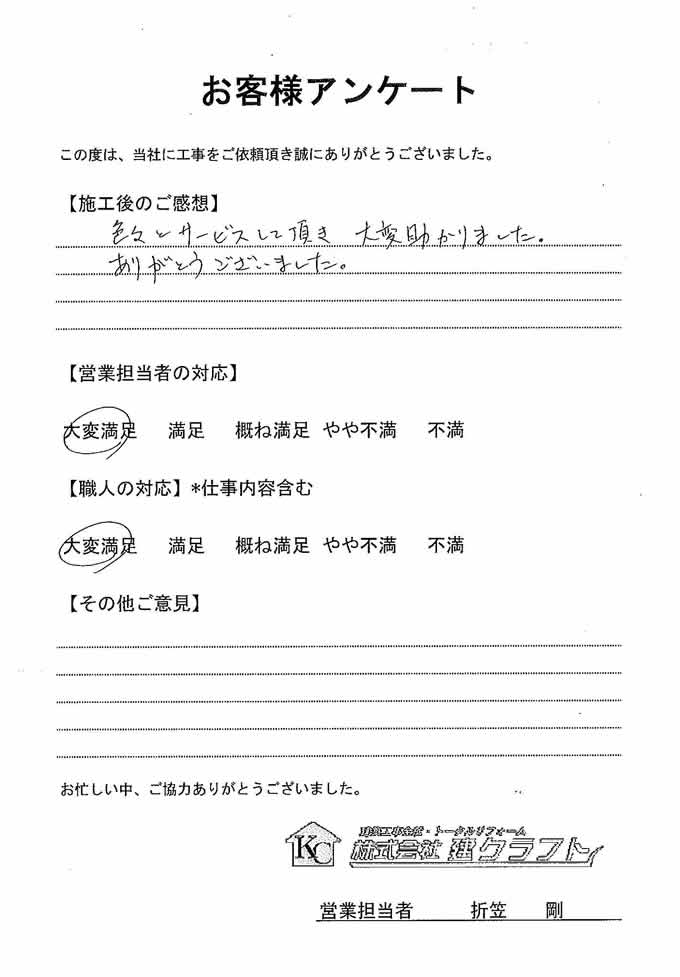 お客様アンケート
この度は、当社に工事をご依頼頂き誠にありがとうございました。
【施工後のご感想】
色々とサービスして頂き 大変助かりました。
ありがとうございました。
【営業担当者の対応】
大変満足 満足 概ね満足 やや不満 不満
【職人の対応】*仕事内容含む
大変満足 満足 概ね満足 やや不満 不満
【その他ご意見】
お忙しい中、ご協力ありがとうございました。
建築工事全般・トータルリフォーム
KC 株式会社 建クラフト
営業担当者 折笠 剛